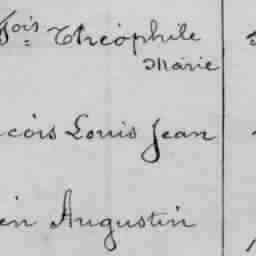 Fois Théophile
Marie
cois Louis Jean
en Augustin